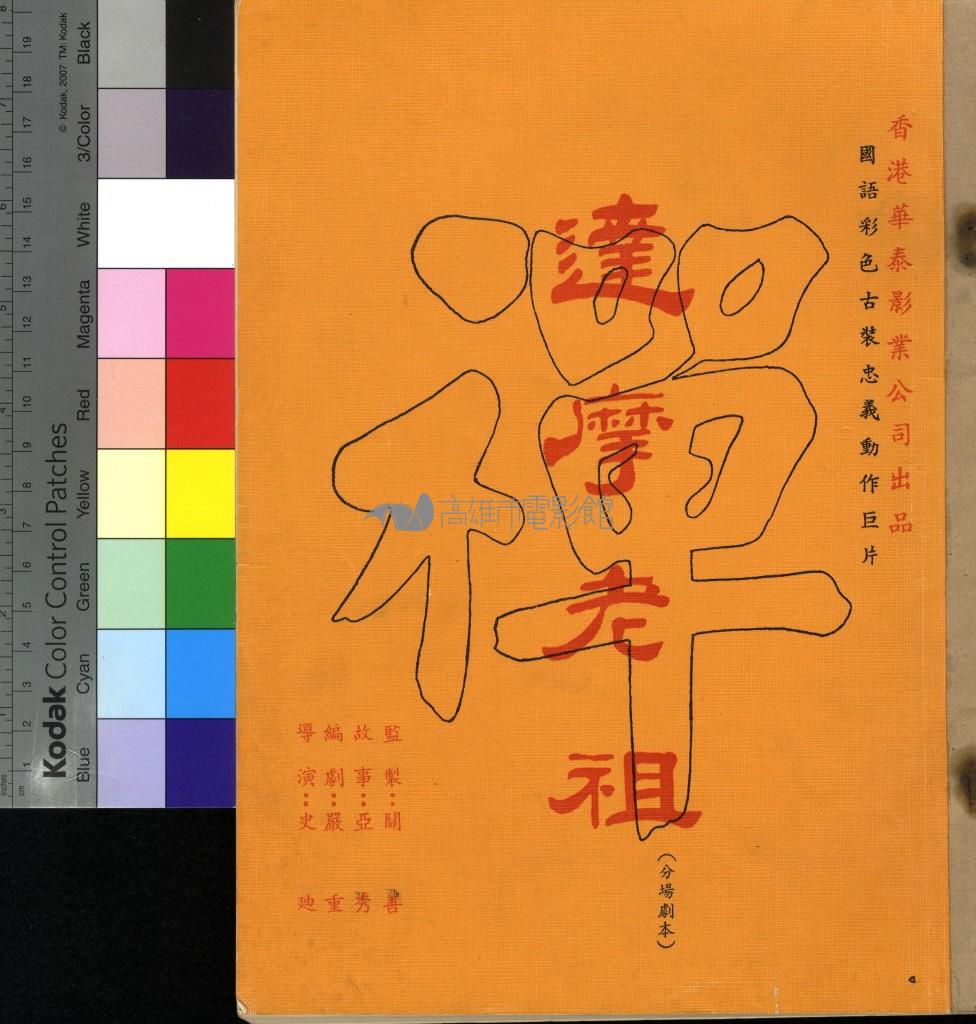 香港華泰影業公司出品
國語彩色古裝忠義動作巨片
禪
達摩老祖
（分場劇本）
監製：關善
故事：亞秀
編劇：嚴重
導演：史廸
高雄市電影館
Kodak Color Control Patches
© Kodak, 2007 TM: Kodak
Blue Cyan Green Yellow Red Magenta White 3/Color Black
inches 1 2 3 4 5 6 7 8
cm 1 2 3 4 5 6 7 8 9 10 11 12 13 14 15 16 17 18 19